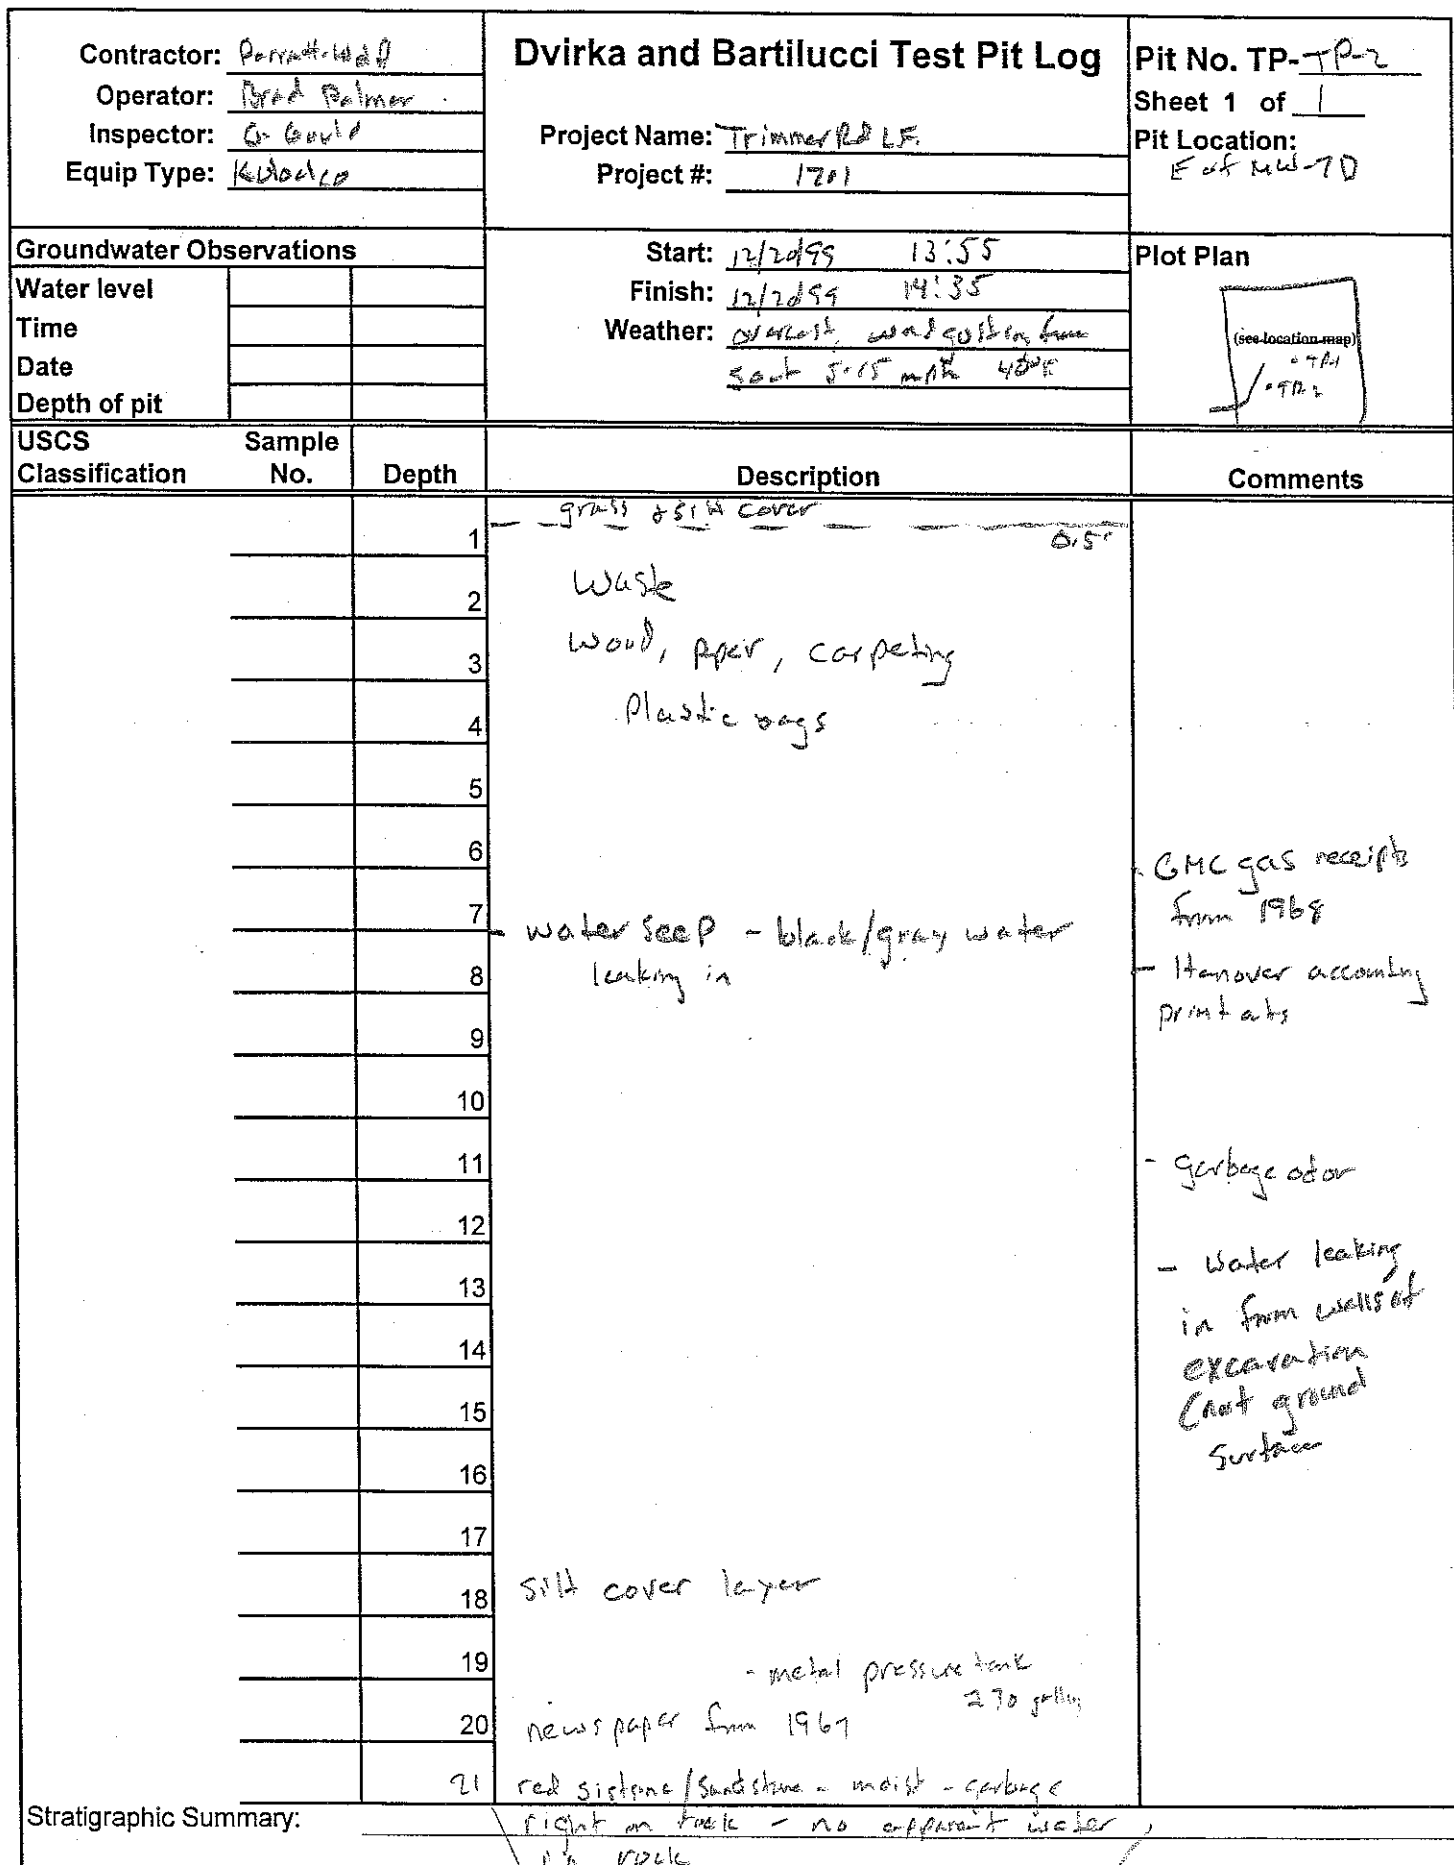 Contractor: Parratt-Wolff
Operator: Brad Palmer
Inspector: G. Gould
Equip Type:
Dvirka and Bartilucci Test Pit Log
Project Name: Trimmer Rd LF.
Project #: 1701
Pit No. TP-TP-2
Sheet 1 of 1
Pit Location:
E of MW-7D
Groundwater Observations
Water level
Time
Date
Depth of pit
Start: 12/20/99 13:55
Finish: 12/20/99 14:35
Weather: overcast, wind gusting from
5-15 mph 40°F
Plot Plan
(see location map)
TP-1
TP-2
USCS Classification
Sample No.
Depth
Description
Comments
grass & silt cover
0.5'
1
Waste
2
Wood, paper, carpeting
3
Plastic bags
4
5
6
- GMC gas receipts
from 1968
7
- water seep - black/gray water
leaking in
8
- Hanover accounting
printouts
9
10
11
- garbage odor
12
- Water leaking
in from walls of
excavation
(not ground
surface
13
14
15
16
17
18
silt cover layer
19
- metal pressure tank
270 gallons
20
newspaper from 1967
21
red sistone/sandstone - moist - garbage
right on rock - no apparent water
in rock
Stratigraphic Summary: